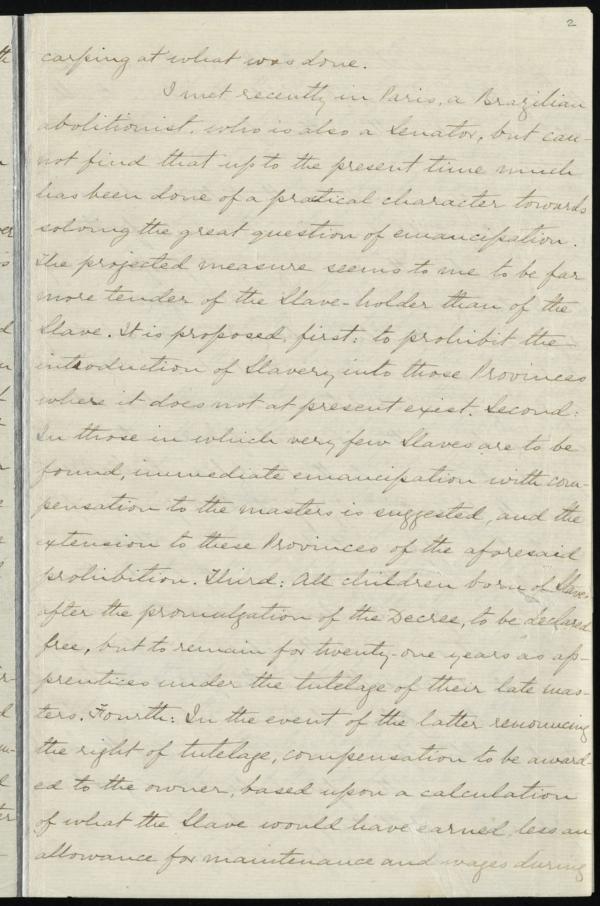 2
carping at what was done.
I met recently in Paris, a Brazilian
abolitionist, who is also a Senator, but can-
not find that up to the present time much
has been done of a pratical character towards
solving the great question of emancipation.
The projected measure seems to me to be far
more tender of the Slave-holder than of the
Slave. It is proposed, first: to prohibit the
introduction of Slavery, into those Provinces
where it does not at present exist. Second:
In those in which very few Slaves are to be
found, immediate emancipation with com-
pensation to the masters is suggested, and the
extension to these Provinces of the aforesaid
prohibition. Third: All children born of Slaves
after the promulgation of the Decree, to be declared
free, but to remain for twenty-one years as ap-
prentices under the tutelage of their late mas-
ters. Fourth: In the event of the latter renouncing
the right of tutelage, compensation to be award-
ed to the owner, based upon a calculation
of what the Slave would have earned, less an
allowance for maintenance and wages during